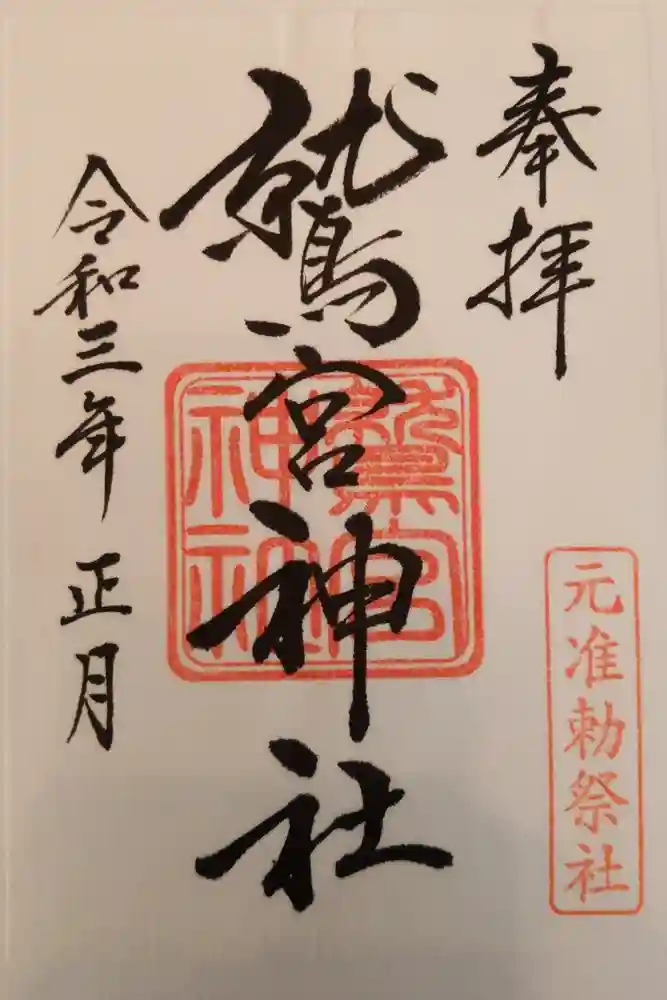 奉拝
元准勅祭社
鷲宮神社
鷲宮
神社
令和三年 正月